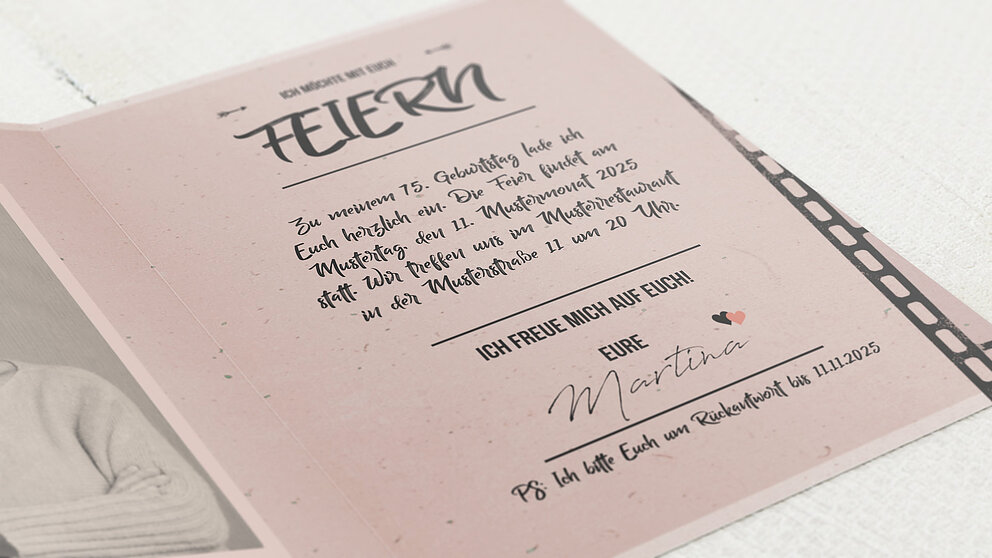 ICH MÖCHTE MIT EUCH
FEIERN
Zu meinem 75. Geburtstag lade ich
Euch herzlich ein. Die Feier findet am
Mustertag, den 11. Mustermonat 2025
statt. Wir treffen uns im Musterrestaurant
in der Musterstraße 11 um 20 Uhr.
ICH FREUE MICH AUF EUCH!
EURE
Martina
PS: Ich bitte Euch um Rückantwort bis 11.11.2025